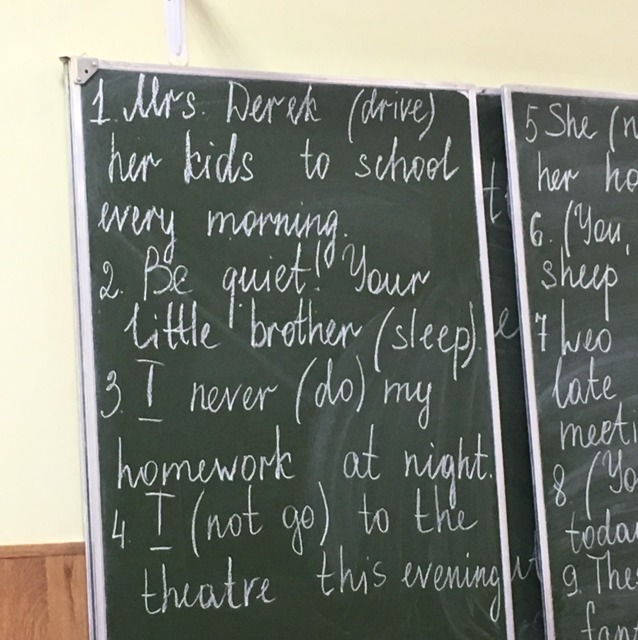 1. Mrs. Derek (drive)
her kids to school
every morning.
2. Be quiet! Your
little brother (sleep).
3. I never (do) my
homework at night.
4 I (not go) to the
theatre this evening
5 She (n
her ho
6. (You,
sheep
7 Leo
late
meeti
8 (Yo
today
9. The